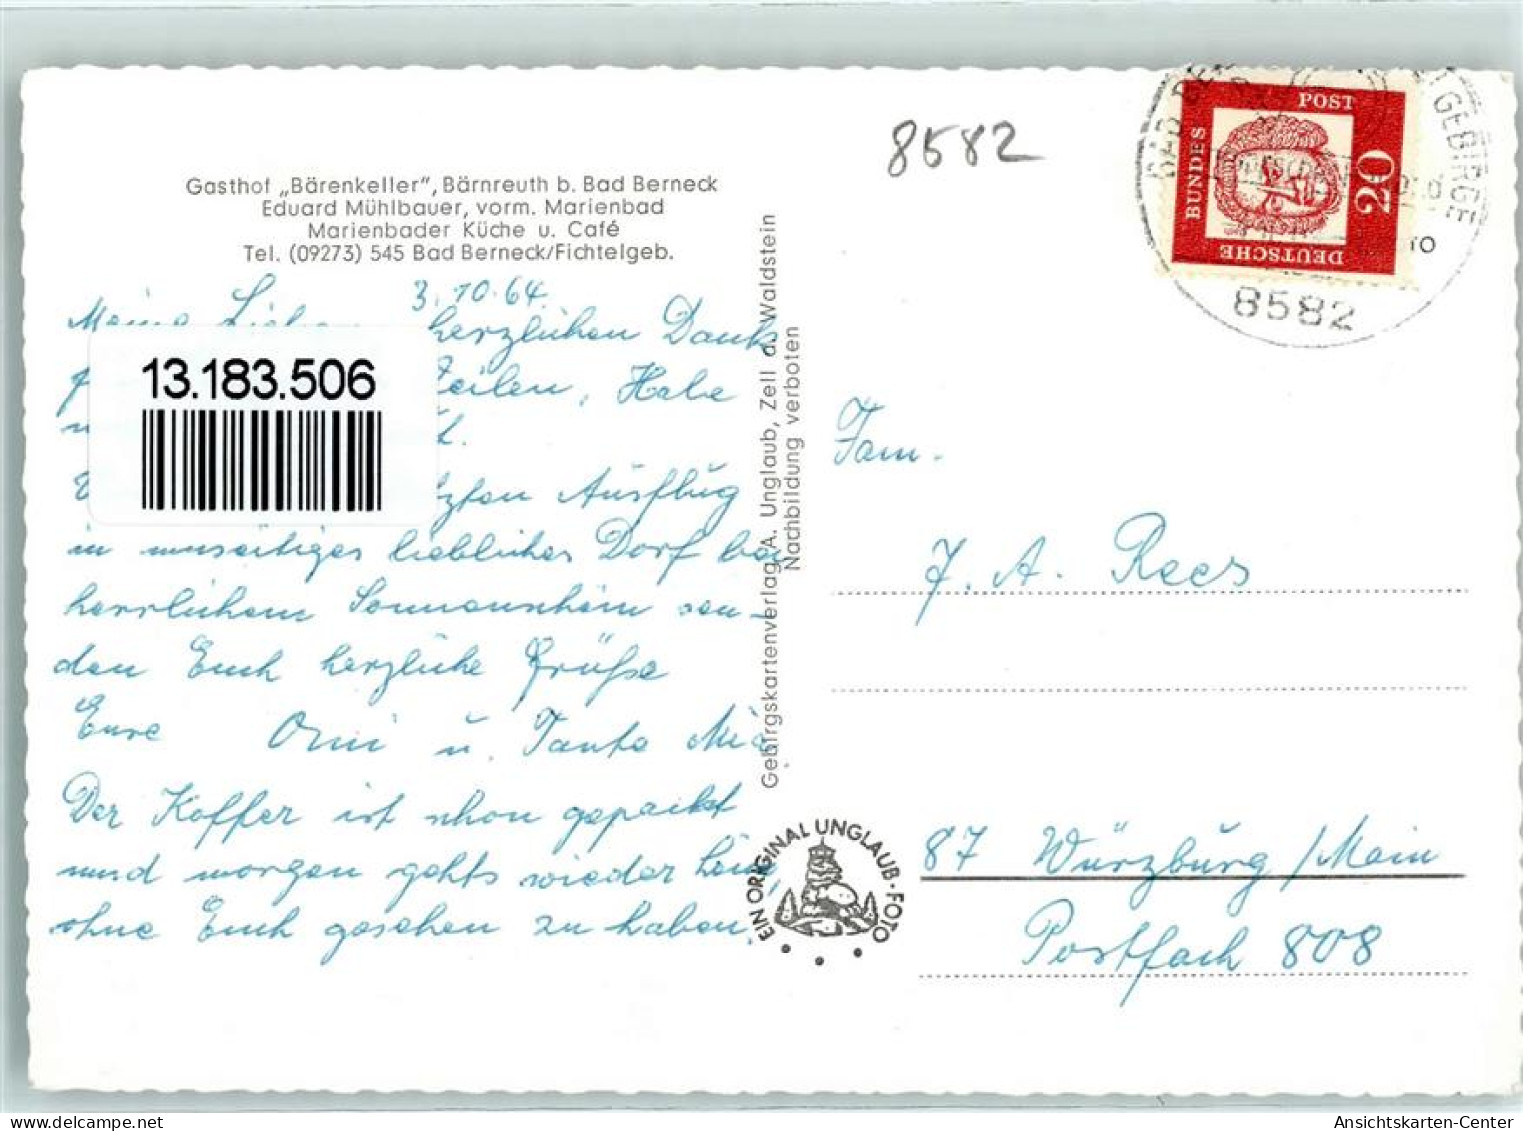 8582
Gasthof „Bärenkeller", Bärnreuth b. Bad Berneck
Eduard Mühlbauer, vorm. Marienbad
Marienbader Küche u. Café
Tel. (09273) 545 Bad Berneck/Fichtelgeb.
3.10.64.
Meine herzlichen Dank
Zeilen, Habe
13.183.506
Ausflug
in liebliches Dorf bei
herrlichem Sonnenschein sen-
den Euch herzliche Grüße
Eure Omi u. Tante
Der Koffer ist schon gepackt
und morgen gehts wieder heim,
ohne Euch gesehen zu haben.
Gebirgskartenverlag A. Unglaub, Zell a. Waldstein
Nachbildung verboten
EIN ORIGINAL UNGLAUB-FOTO
DEUTSCHE
BUNDES
POST
20
8582
Fam.
J. A. Rees
87 Würzburg/Main
Postfach 808
Ansichtskarten-Center